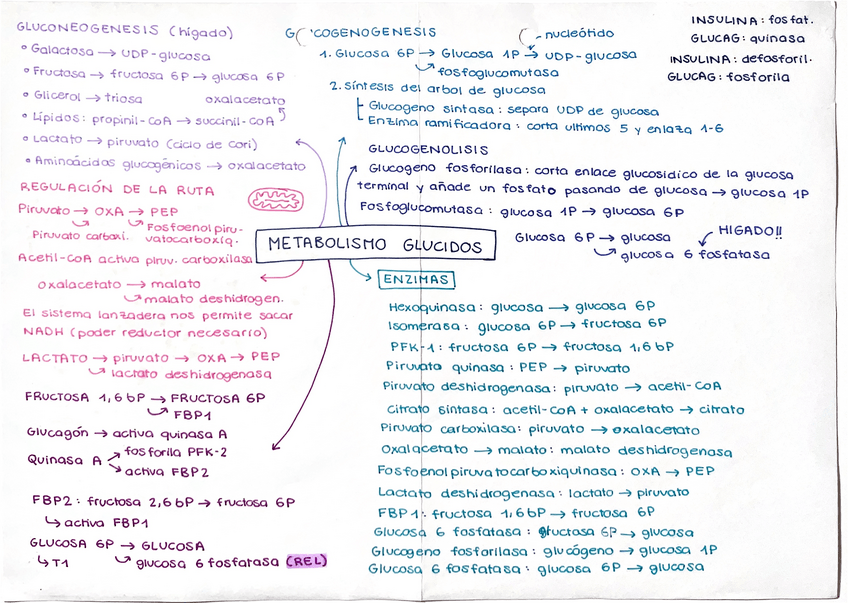 GLUCONEOGENESIS (hígado)
• Galactosa → UDP-glucosa
• Fructosa → fructosa 6P → glucosa 6P
• Glicerol → triosa
oxalacetato
• Lípidos: propinil-CoA → succinil-CoA
• Lactato → piruvato (ciclo de cori)
• Aminoácidos glucogénicos → oxalacetato
REGULACIÓN DE LA RUTA
Piruvato → OXA → PEP
Piruvato carboxi.
Fosfoenol piru-
vatocarboxiq.
Acetil-CoA activa piruv. carboxilasa
oxalacetato → malato
malato deshidrogen.
El sistema lanzadera nos permite sacar
NADH (poder reductor necesario)
LACTATO → piruvato → OXA → PEP
lactato deshidrogenasa
FRUCTOSA 1,6 bP → FRUCTOSA 6P
FBP1
Glucagón → activa quinasa A
Quinasa A
fosforila PFK-2
activa FBP2
FBP2: fructosa 2,6 bP → fructosa 6P
↳ activa FBP1
GLUCOSA 6P → GLUCOSA
↳ T1
glucosa 6 fosfatasa (REL)
METABOLISMO GLUCIDOS
G COGENOGENESIS
nucleótido
1. Glucosa 6P → Glucosa 1P → UDP-glucosa
fosfoglucomutasa
2. síntesis del arbol de glucosa
Glucogeno sintasa: separa UDP de glucosa
Enzima ramificadora: corta ultimos 5 y enlaza 1-6
INSULINA: fosfat.
GLUCAG: quinasa
INSULINA: defosforil.
GLUCAG: fosforila
GLUCOGENOLISIS
Glucogeno fosforilasa: corta enlace glucosidico de la glucosa
terminal y añade un fosfato pasando de glucosa → glucosa 1P
Fosfoglucomutasa: glucosa 1P → glucosa 6P
Glucosa 6P → glucosa
HIGADO!!
glucosa 6 fosfatasa
ENZIMAS
Hexoquinasa: glucosa → glucosa 6P
Isomerasa: glucosa 6P → fructosa 6P
PFK-1: fructosa 6P → fructosa 1,6 bP
Piruvato quinasa: PEP → piruvato
Piruvato deshidrogenasa: piruvato → acetil-CoA
Citrato sintasa: acetil-CoA + oxalacetato → citrato
Piruvato carboxilasa: piruvato → oxalacetato
Oxalacetato → malato: malato deshidrogenasa
Fosfoenolpiruvatocarboxiquinasa: OXA → PEP
Lactato deshidrogenasa: lactato → piruvato
FBP1: fructosa 1,6bP → fructosa 6P
Glucosa 6 fosfatasa: fructosa 6P → glucosa
Glucogeno fosforilasa: glucógeno → glucosa 1P
Glucosa 6 fosfatasa: glucosa 6P → glucosa